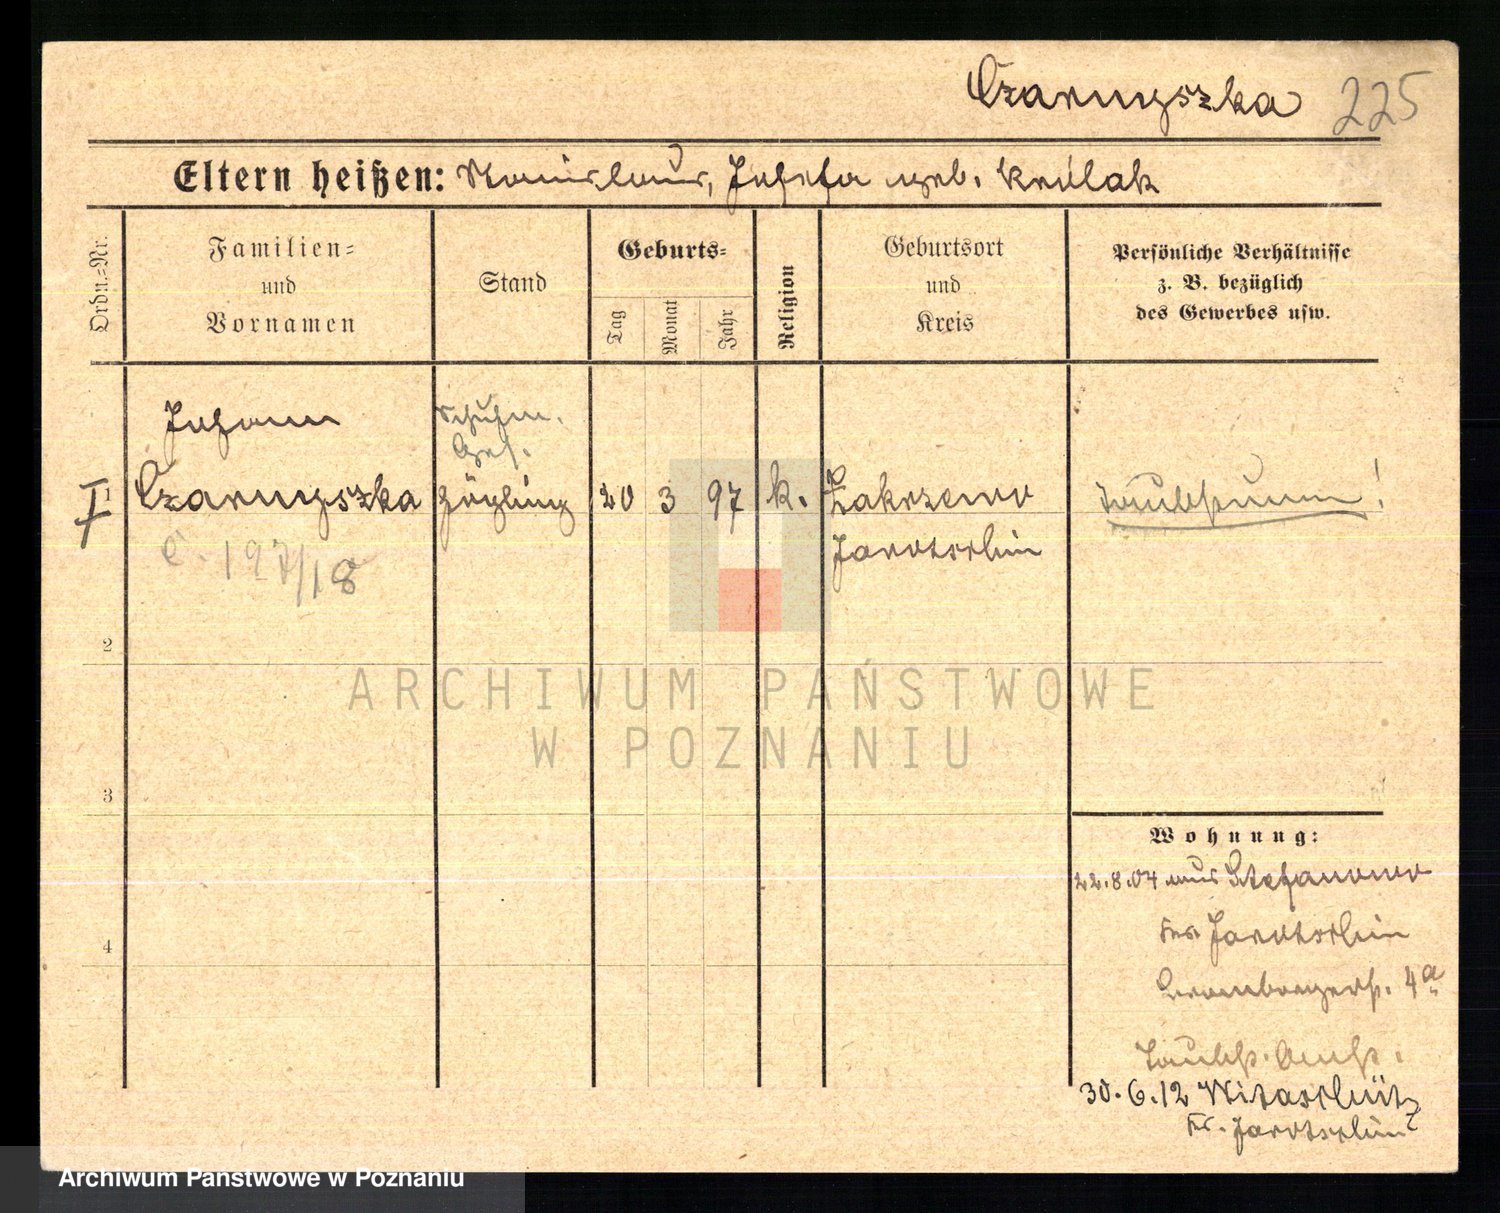 Czarnyszka 225
Eltern heißen: Stanislaus, Josefa geb. Królak
Ordn.-Nr.
Familien-
und
Vornamen
Stand
Geburts-
Tag
Monat
Jahr
Religion
Geburtsort
und
Kreis
Persönliche Verhältnisse
z. B. bezüglich
des Gewerbes usw.
Johann Schuhm.
Ges.
1 Czarnyszka Zögling 20 3 97 k. Zakrzewo taubstumm!
Jarotschin
C. 197/18
2
ARCHIWUM PAŃSTWOWE
W POZNANIU
3
Wohnung:
22.8.04 aus Stefanowo
4
Krs. Jarotschin
Brombergerst. 4a
Taubst. Anst.
30.6.12 Witaschütz
Kr. Jarotschin
Archiwum Państwowe w Poznaniu